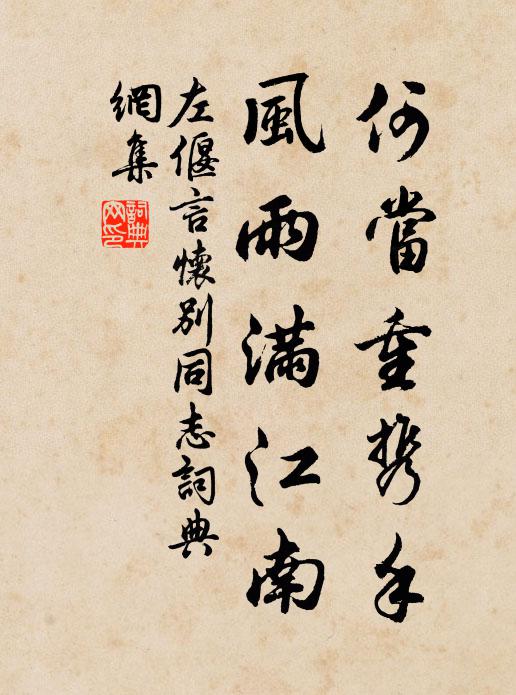 何當重攜手
風雨滿江南
左偃言懷別同志詞典
網集
詞典
網印